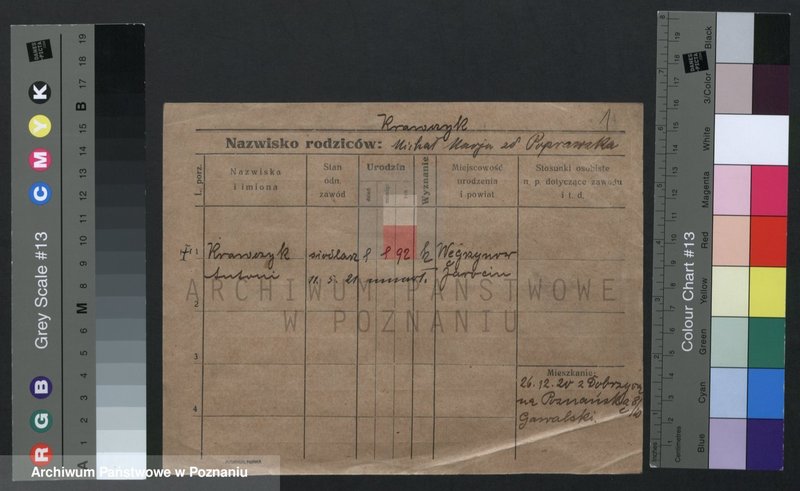 Krawczyk
1.
Nazwisko rodziców: Michał Marja zd Poprawska
l. porz.
Nazwiska i imiona
Stan odn. zawód
Urodzin
dzień
rok
Wyznanie
Miejscowość urodzenia i powiat
Stosunki osobiste n. p. dotyczące zawodu i t. d.
1
Krawczyk
siodlarz
92
Antoni
11. 5. 21
Jarocin
2
3
4
Mieszkanie:
26.12.20 z Dobrzycy
na Poznańską
Gawalski.
ARCHIWUM PAŃSTWOWE
W POZNANIU
Archiwum Państwowe w Poznaniu
Grey Scale #13
C M Y K
R G B
A 1 2 3 4 5 6 M 8 9 10 11 12 13 14 15 B 17 18 19
Colour Chart #13
Blue
Cyan
Green
Yellow
Red
Magenta
White
3/Color
Black
Inches
Centimetres
DANES PICTA